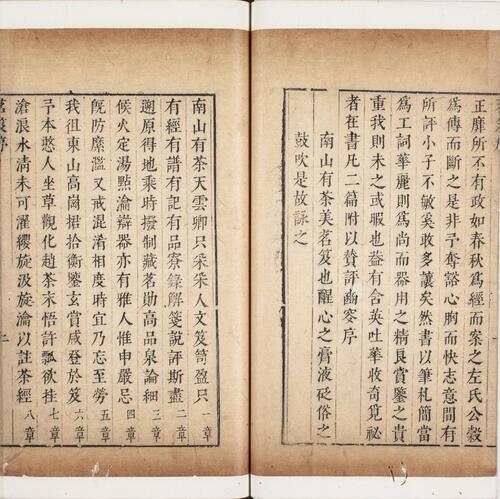 正靡所不有政如春秋爲經而案之左氏公穀
爲傅而斷之是非予奪豁心胸而快志意間有
所評小子不敏奚敢多讓矣然書以筆札簡當
爲工詞華麗則爲尚而器用之精良賞鑒之貴
重我則未之或暇也葢有含英吐華收奇覓秘
者在書凡二篇附以贊評幽叜序
南山有茶美茗笈也醒心之膏液砭俗之
鼓吹是故詠之
南山有茶天雲卿只采采人文笈笥盈只 一章
有經有譜有記有品寮錄解箋說評斯盡 二章
遡原得地乘時揆制藏茗勛高品泉論細 三章
候火定湯點瀹辯器亦有雅人惟申嚴忌 四章
旣防縻濫又戒混淆相度時宜乃忘至勞 五章
我徂東山高崗捃拾衡鑒玄賞咸登於笈 六章
予本憨人坐草觀化趙茶未悟許瓢欲挂 七章
滄浪水清未可濯纓旋汲旋瀹以註茶經 八章
茗笈序